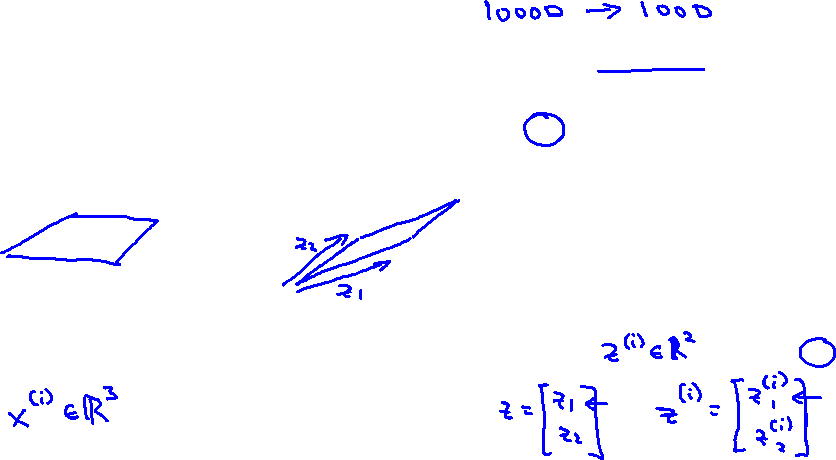 1000D → 100D
z₂
z₁
z⁽ⁱ⁾ ∈ ℝ²
x⁽ⁱ⁾ ∈ ℝ³
z = [z₁ z₂] z⁽ⁱ⁾ = [z₁⁽ⁱ⁾ z₂⁽ⁱ⁾]